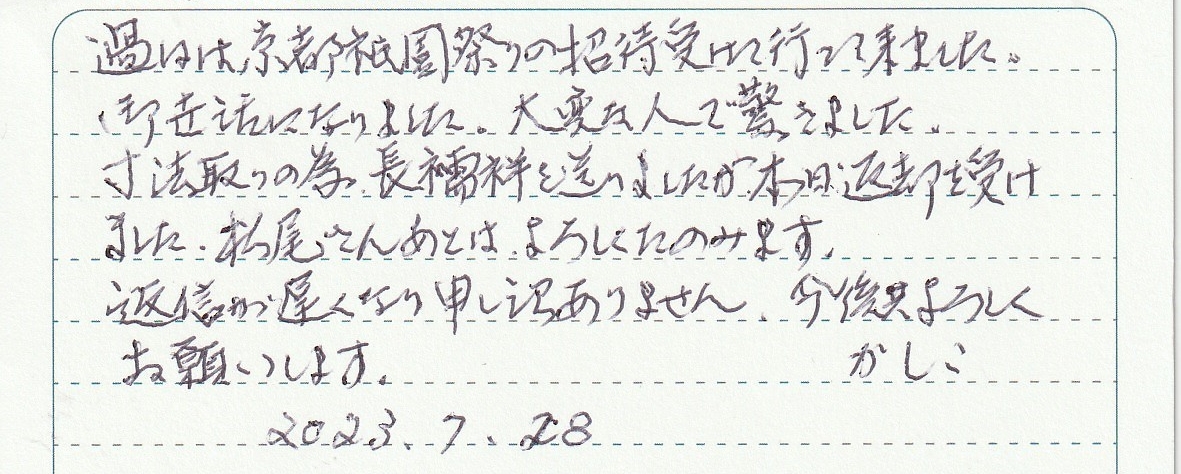 過日は京都祇園祭りの招待受けて行って来ました。
御世話になりました。大変な人で驚きました。
寸法取りの為、長襦袢を送りましたが本日返却を受け
ました。松尾さんあとは、よろしくたのみます。
返信が遅くなり申し訳ありません、今後共よろしく
お願いします。　かしこ
2023.7.28